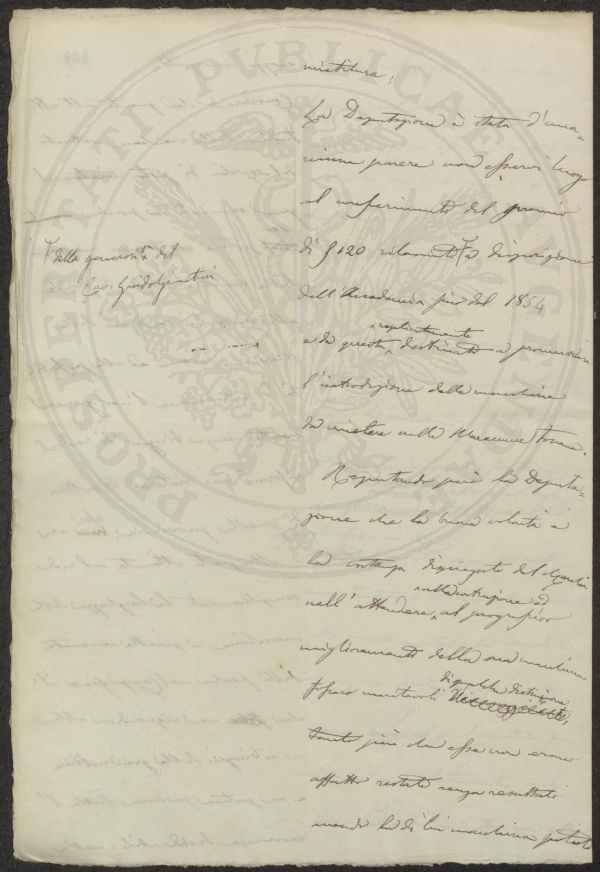 mietitura;
La Deputazione è stata d'una-
nime parere non esservi luogo
al conferimento del premio
di £ 120 rilasciato a disposizione
della generosità del
Cav. Guido
dell'Accademia fin dal 1854
e da questa esplicitamente destinato a promuovere
l'introduzione delle macchine
da mietere nelle Maremme Toscane.
Reputando però la Deputa-
zione che la buona volontà e
la costanza dispiegate del
nell'attendere sulla costruzione ed al progressivo
miglioramento della sua macchina
fossero meritevoli di qualche distinzione
tanto più che esse non erano
affatto restate senza resultato
avendo la di lui macchina potuto
PROSPERITATI PUBLICAE AUGENDAE